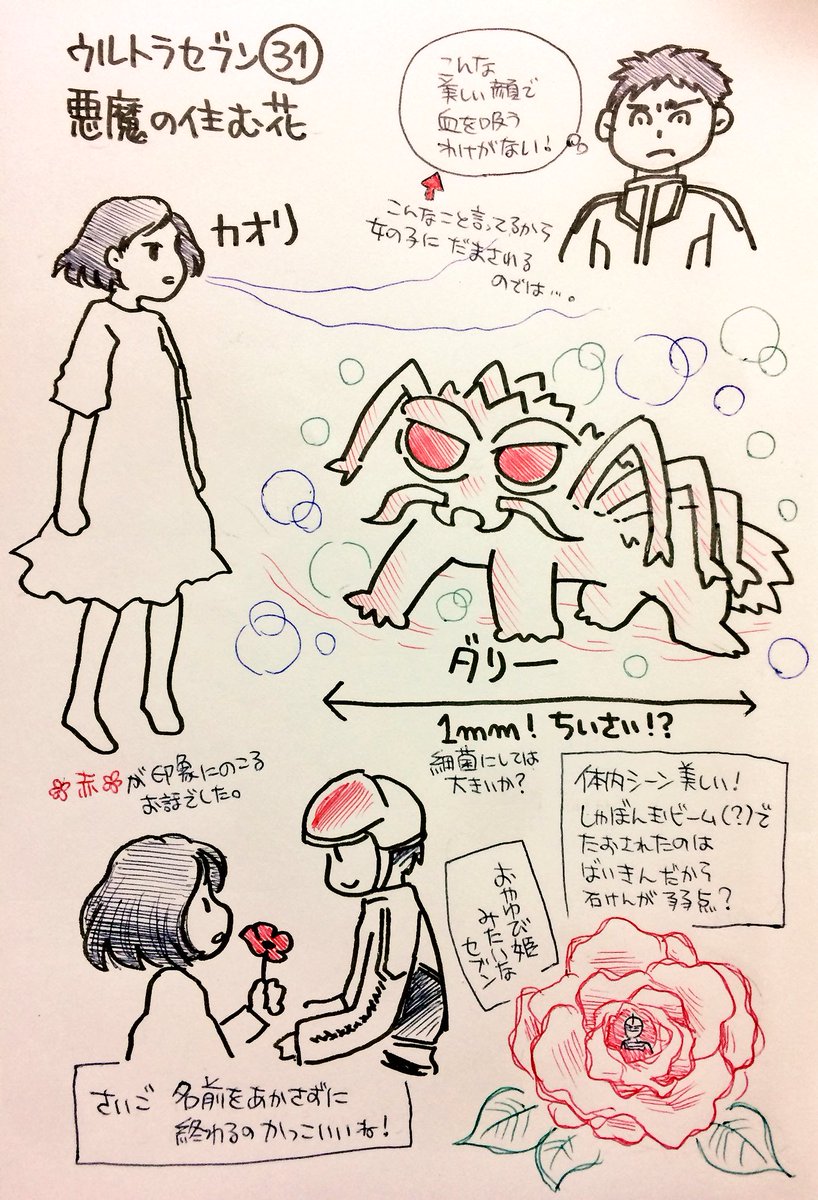 ウルトラセブン㉛
悪魔の住む花
こんな
美しい顔で
血を吸う
わけがない!
こんなこと言ってるから
女の子に だまされる
のでは…。
カオリ
ダリー
1mm! ちいさい!?
細菌にしては
大きいか?
赤が印象にのこる
お話でした。
体内シーン美しい!
しゃぼん玉ビーム(?)で
たおされたのは
ばいきんだから
石けんが弱点?
おやゆび姫
みたいな
セブン
さいご 名前をあかさずに
終わるのかっこいいね!